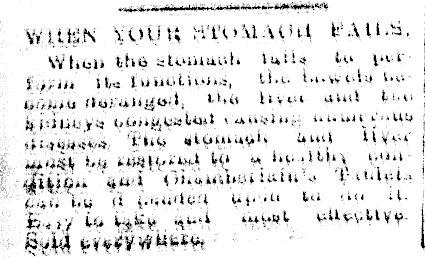 WHEN YOUR STOMACH FAILS.
When the stomach fails to per-
form its functions, the bowels be-
come deranged, the liver and the
kidneys congested causing numerous
diseases. The stomach and liver
must be restored to a healthy con-
dition and Chamberlain's Tablets
can be depended upon to do it.
Easy to take and most effective.
Sold everywhere.